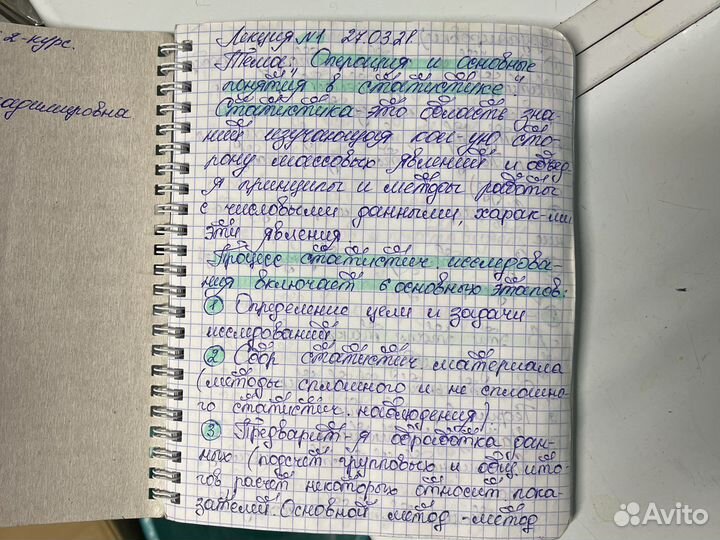 2-курс.
адимировна
Лекция №1 27.03.21
Тема: "Операция и основные
понятия в статистике"
Статистика-это область зна-
ний изучающая кол-ую сто-
рону массовых явлений и объед-
я принципы и методы работы
с числовыми данными, харак-ми
эти явления
Процесс статистич исследова-
ния включает 6 основных этапов:
1 Определение цели и задачи
исследований
2 Сбор статистич. материала
(методы сплошного и не сплошно-
го статистич. наблюдения).
3 Предварит-я обработка дан-
ных (подсчёт групповых и общ ито-
гов расчёт некоторых относит. пока-
зателей. Основной метод - метод
Avito